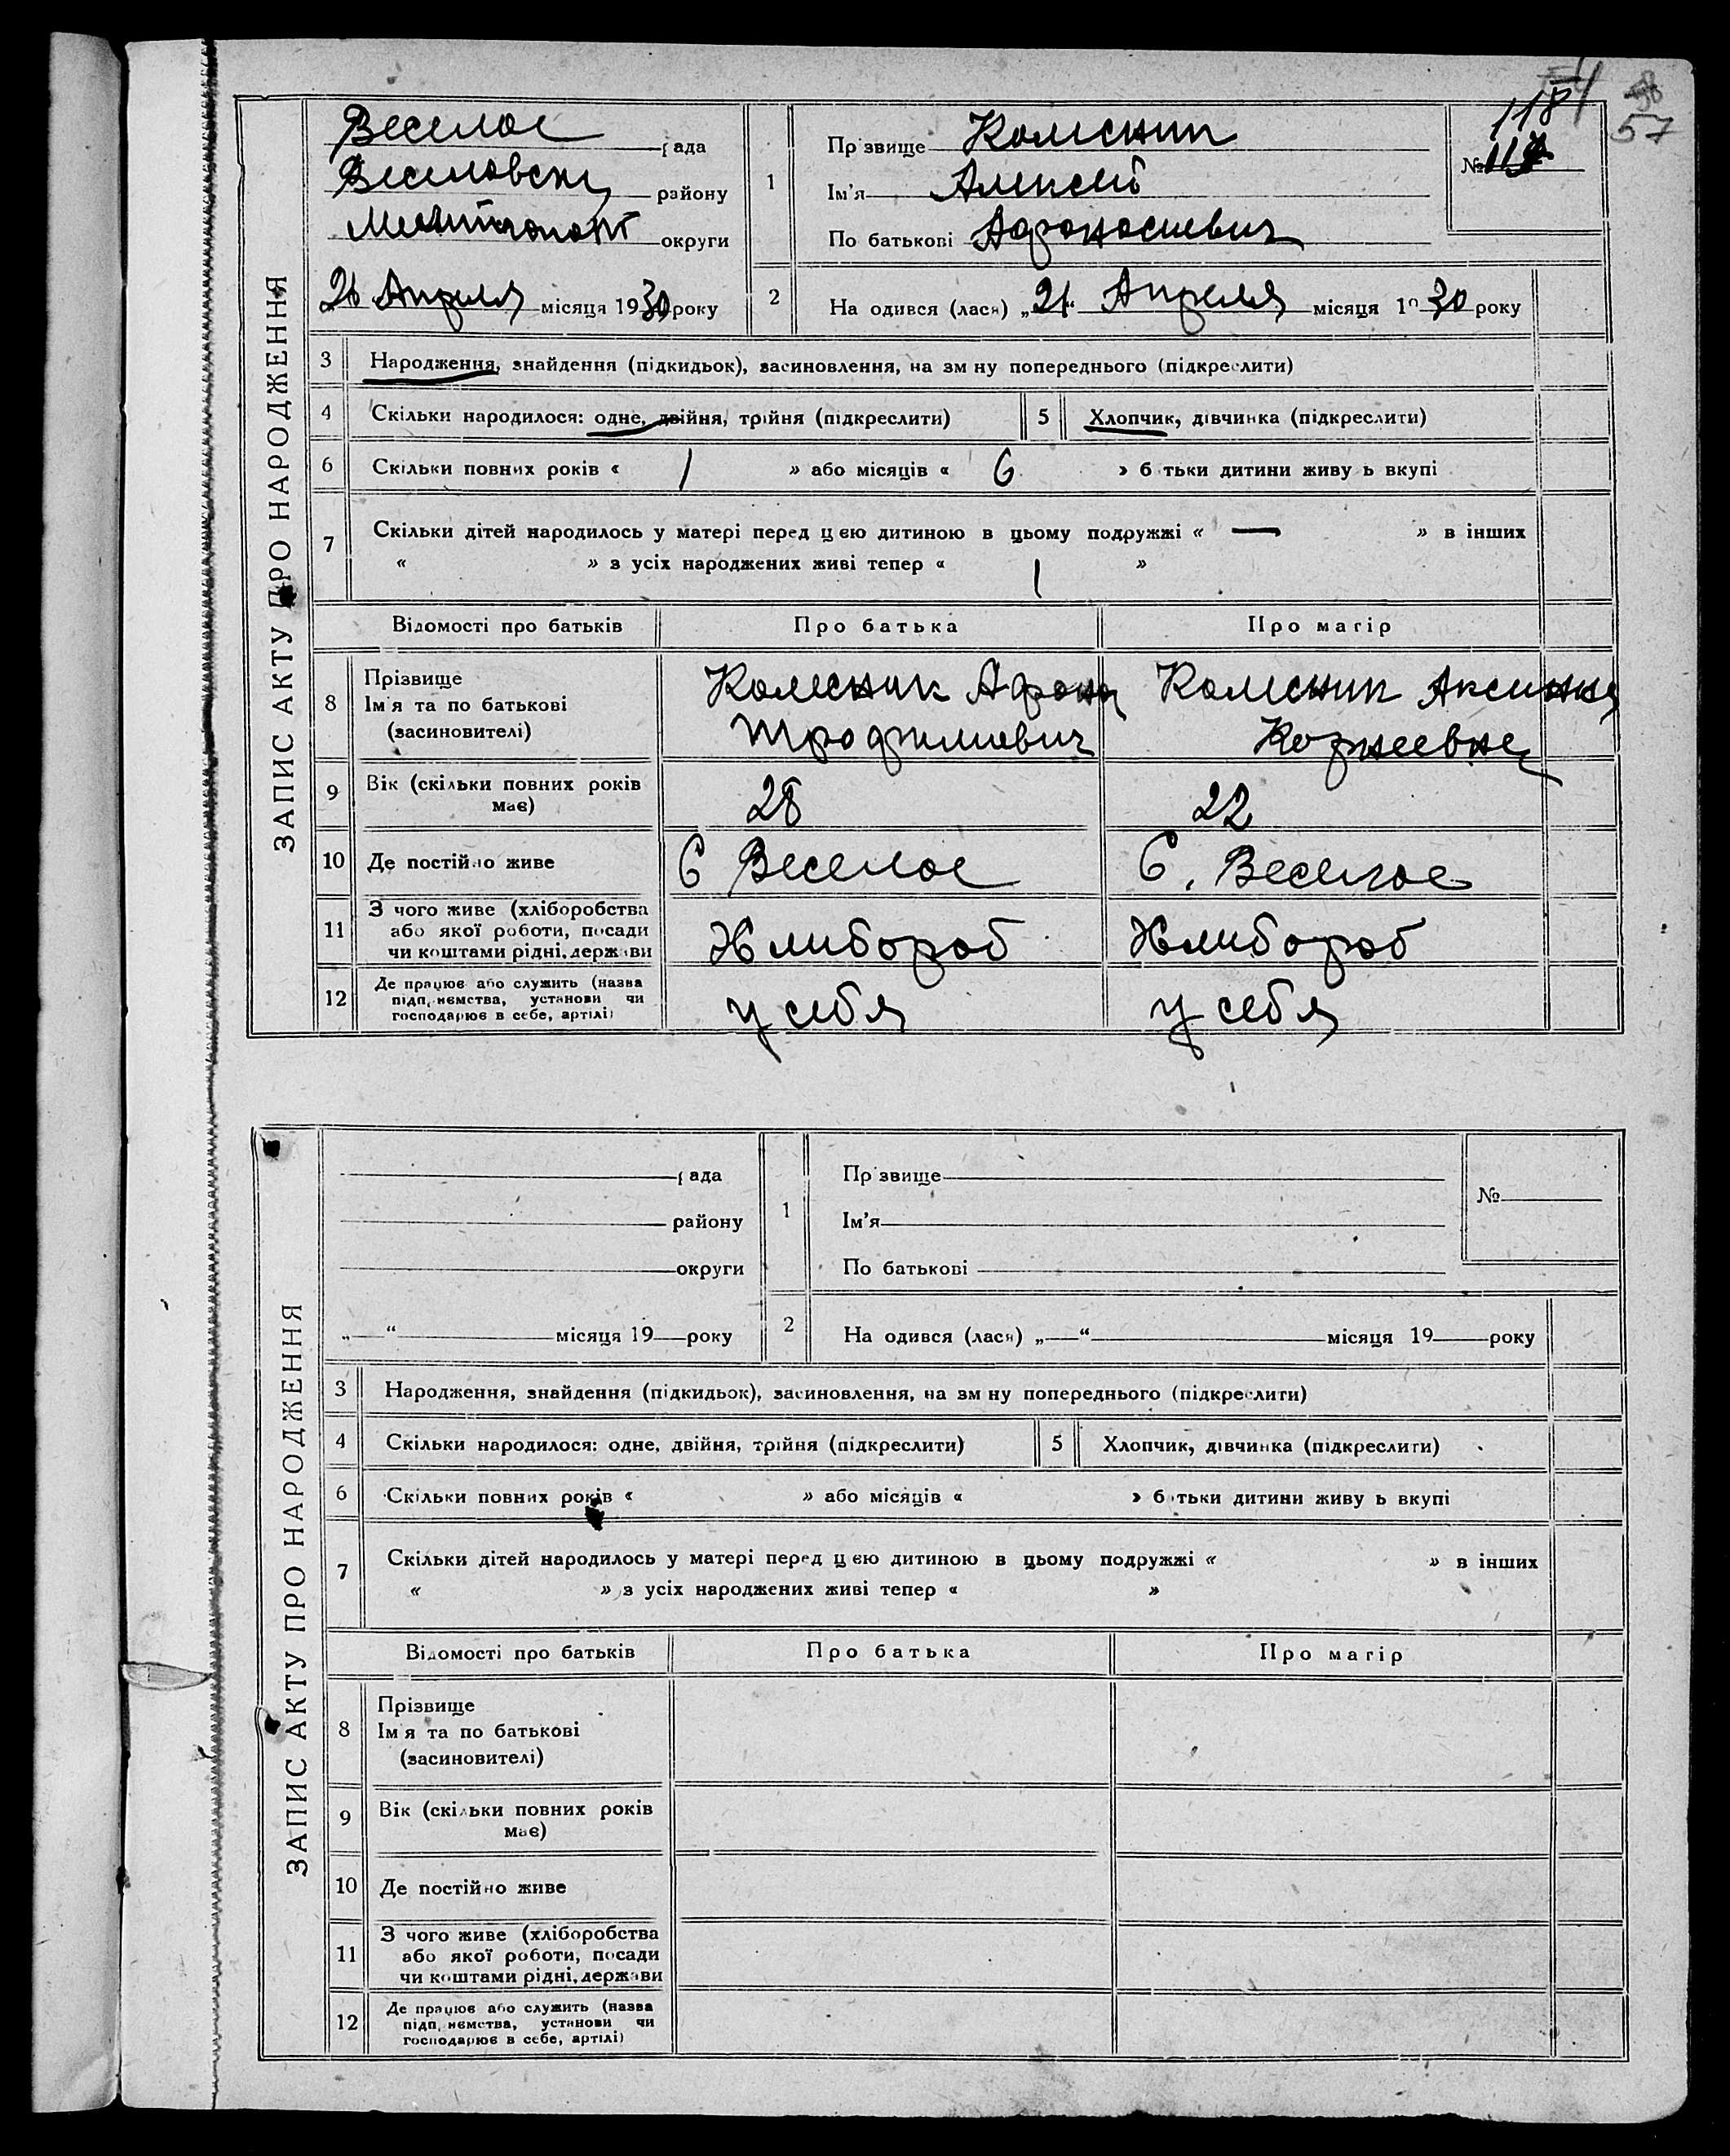 118
57
ЗАПИС АКТУ ПРО НАРОДЖЕННЯ
Веселое рада
Веселовски району
Мелитопол округи
Апреля місяця 1930 року
1
Прізвище Колесник
Ім'я Алексей
По батькові Афонасиевич
№
2
На одився (лася) „21“ Апреля місяця 1930 року
3 Народження, знайдення (підкидьок), засиновлення, на зм ну попереднього (підкреслити)
4 Скільки народилося: одне, двійня, трійня (підкреслити) 5 Хлопчик, дівчинка (підкреслити)
6 Скільки повних років « 1 » або місяців « 6 » б тьки дитини живу ь вкупі
7 Скільки дітей народилось у матері перед цею дитиною в цьому подружжі « — » в інших
« » з усіх народжених живі тепер « 1 »
Відомості про батьків Про батька Про матір
8 Прізвище
Ім'я та по батькові
(засиновителі)
Колесник Афона
Трофимович
Колесник Аксиния
Корнеевна
9 Вік (скільки повних років
має)
28 22
10 Де постійно живе С Веселое С. Веселое
11 З чого живе (хліборобства
або якої роботи, посади
чи коштами рідні, держави
Хлибороб Хлибороб
12 Де працює або служить (назва
підп. ємства, установи чи
господарює в себе, артілі)
у себя у себя
ЗАПИС АКТУ ПРО НАРОДЖЕННЯ
рада
району
округи
„ “ місяця 19 року
1
Пр звище
Ім'я
По батькові
№
2
На одився (лася) „ “ місяця 19 року
3 Народження, знайдення (підкидьок), засиновлення, на зм ну попереднього (підкреслити)
4 Скільки народилося: одне, двійня, трійня (підкреслити) 5 Хлопчик, дівчинка (підкреслити)
6 Скільки повних років « » або місяців « » б тьки дитини живу ь вкупі
7 Скільки дітей народилось у матері перед цею дитиною в цьому подружжі « » в інших
« » з усіх народжених живі тепер « »
Відомості про батьків Про батька Про матір
8 Прізвище
Ім'я та по батькові
(засиновителі)
9 Вік (скільки повних років
має)
10 Де постійно живе
11 З чого живе (хліборобства
або якої роботи, посади
чи коштами рідні, держави
12 Де працює або служить (назва
підп. ємства, установи чи
господарює в себе, артілі)